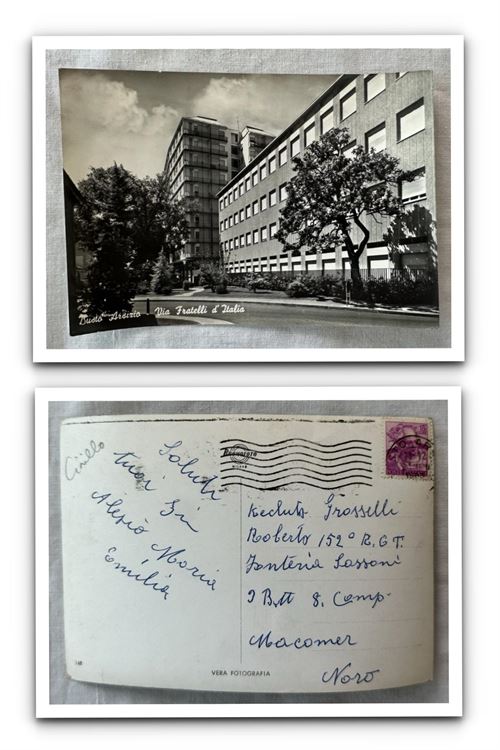 Busto Arsizio - Via Fratelli d'Italia
Cirillo
Saluti
tuoi Zii
Alesio Maria
Emilia
Recluta Grosselli
Roberto 152° R.G.T.
Fanteria Sassari
I Btt 8. Comp-
Macomer
Noro
168
VERA FOTOGRAFIA